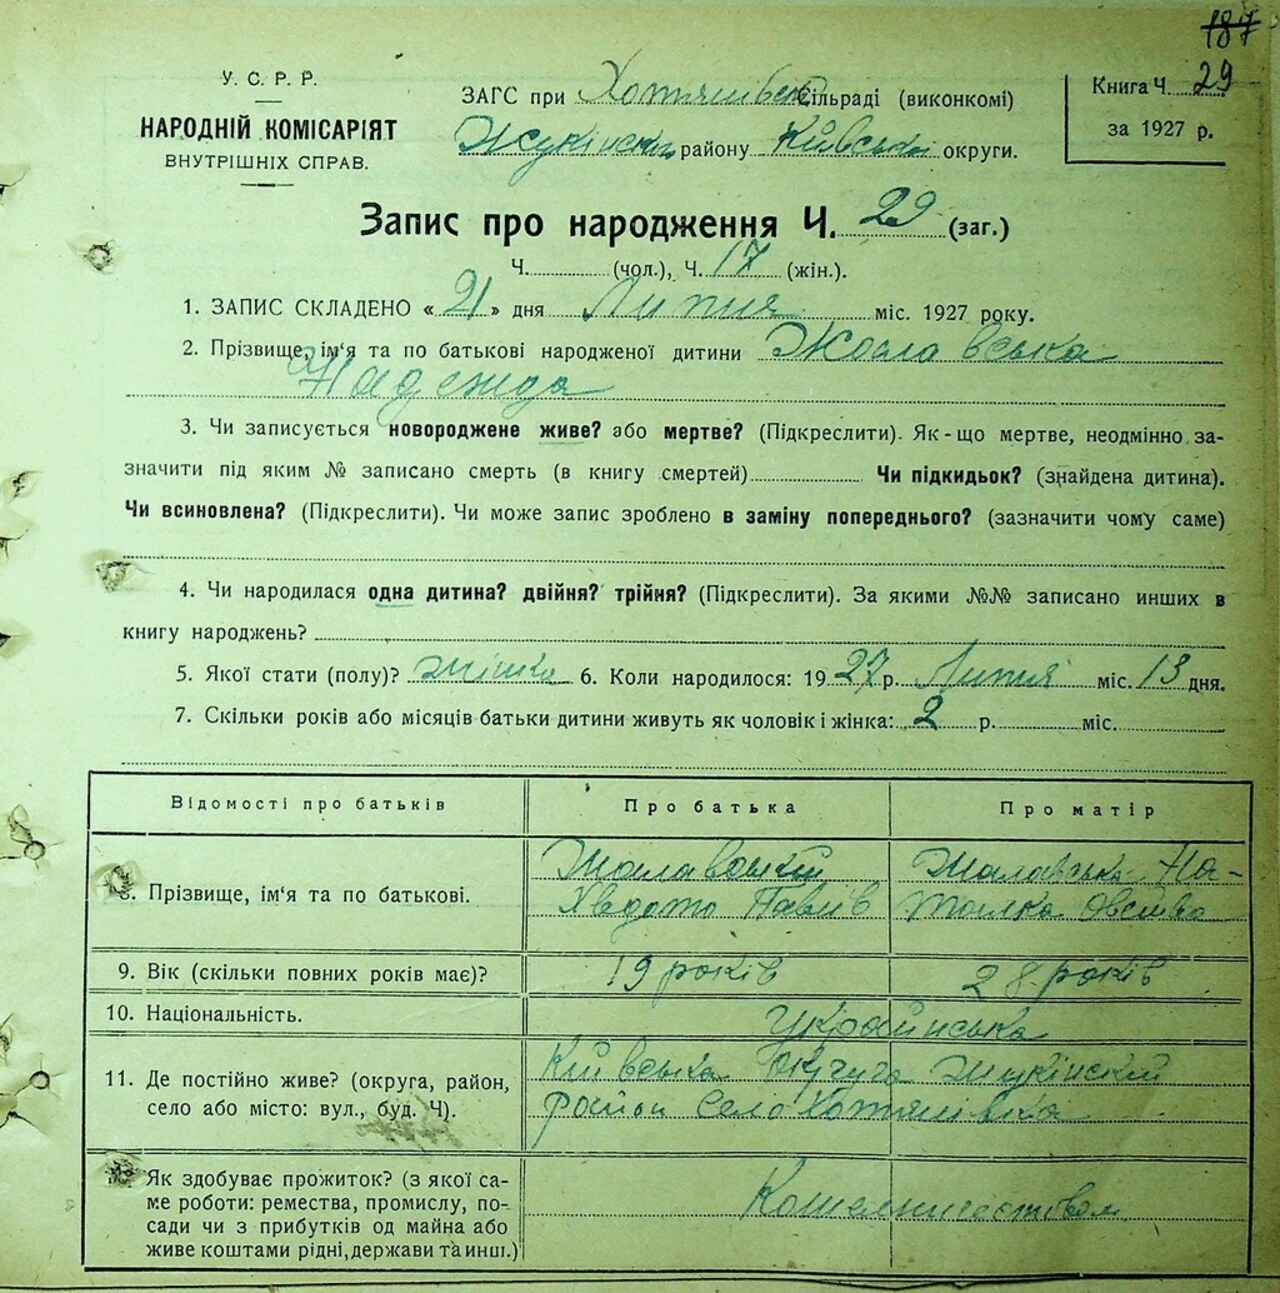 187
У. С. Р. Р.
НАРОДНІЙ КОМІСАРІЯТ
ВНУТРІШНІХ СПРАВ.
ЗАГС при Хотянівській сільраді (виконкомі)
Жукінський району Київської округи.
Книга Ч. 29
за 1927 р.
Запис про народження Ч. 29 (заг.)
Ч. (чол.), Ч. 17 (жін.).
1. ЗАПИС СКЛАДЕНО « 21 » дня Липня міс. 1927 року.
2. Прізвище, ім'я та по батькові народженої дитини
Надежда
3. Чи записується новороджене живе? або мертве? (Підкреслити). Як-що мертве, неодмінно за-
значити під яким № записано смерть (в книгу смертей) Чи підкидьок? (знайдена дитина).
Чи всиновлена? (Підкреслити). Чи може запис зроблено в заміну попереднього? (зазначити чому саме)
4. Чи народилася одна дитина? двійня? трійня? (Підкреслити). За якими №№ записано инших в
книгу народжень?
5. Якої стати (полу)? жінка 6. Коли народилося: 1927 р. Липня міс. 13 дня.
7. Скільки років або місяців батьки дитини живуть як чоловік і жінка: 2 р. міс.
Відомості про батьків Про батька Про матір
8. Прізвище, ім'я та по батькові.
Павлів
На-
талка
9. Вік (скільки повних років має)? 19 років 28 років
10. Національність. Українська
11. Де постійно живе? (округа, район,
село або місто: вул., буд. Ч).
Київська Округа Жукінский
район село Хотянівка
Як здобуває прожиток? (з якої са-
ме роботи: ремества, промислу, по-
сади чи з прибутків од майна або
живе коштами рідні, держави та инш.)